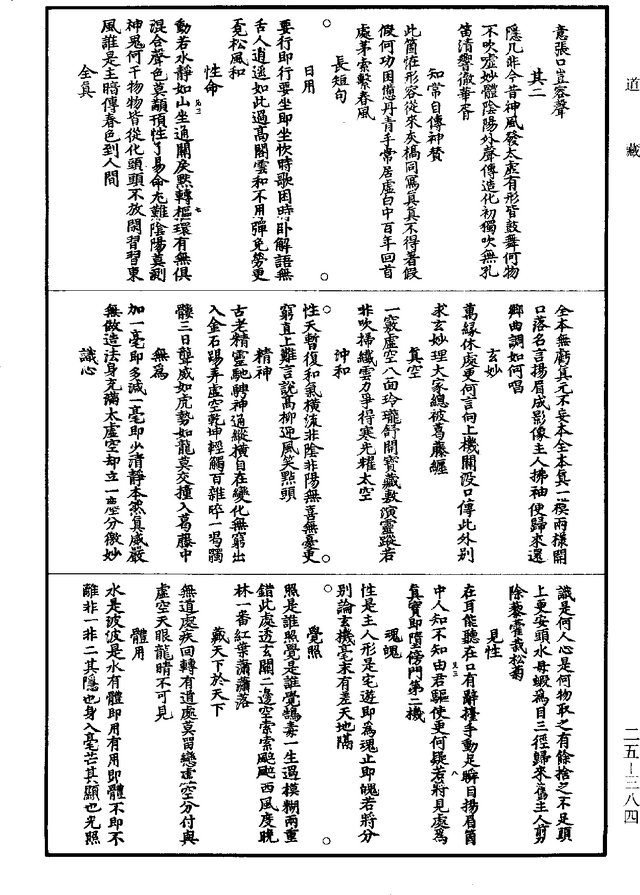 道藏
意張口豈容聲
其二
隱几非今昔神風發太虛有形皆鼓舞何物
不吹噓妙體陰陽外聲傳造化初獨吹無孔
笛清響徹華胥
知常自傳神贊
此箇恠形容從來灰槁同寫真真不得著假
假何功困憊丹青手常居虛白中百年回首
處茅索繫春風
長短句
日用
要行即行要坐即坐忺時歌困時卧解語無
舌人逍遙如此過高閣雲和不用彈免勞更
覓松風和
性命
動若水靜如山坐通關戾㸃轉樞環有無俱
混合聲色莫顢頇性了易命尢難陰陽莫測
神鬼何干物物皆從化頭頭不放閑習習東
風誰是主暗傳春色到人間
全真
全本無虧真元不妄本全本真一模兩樣開
口落名言揚眉成影像主人拂袖便歸來還
鄉曲調如何唱
玄妙
萬緣休處更何言向上機關没口傳此外別
求玄妙理大家總被葛藤纏
真空
一竅虛空八面玲瓏舒開寳藏敷演靈蹤若
非吹掃纖雲力爭得寒光耀太空
沖和
性天暫復和氣橫流非陰非陽無喜無憂更
窮直上難言説髙柳迎風笑㸃頭
精神
古老精靈馳騁神通縱橫自在變化無窮出
入金石踢弄虛空乾坤輕觸百雜碎一喝髑
髏三日聾威如虎勢如龍莫交撞入葛藤中
無為
加一毫即多減一毫即少清靜本然真威嚴
無做造法身充滿太虛空却立一塵分微妙
識心
識是何人心是何物取之有餘捨之不足頭
上更安頭水母蝦為目三徑歸來舊主人剪
除藜藿栽松菊
見性
在耳能聽在口有辭擡手動足瞬目揚眉箇
中人知不知由君驅使更何疑若將見處為
真實即墮傍門第二機
魂魄
性是主人形是宅遊即為魂止即魄若將分
别論玄機毫末有差天地隔
覺照
照是誰照覺是誰覺鴆毒一生過模糊兩重
錯此處透玄關二邊空索索颼颼西風度晚
林一番紅葉蕭蕭落
藏天下於天下
無道處疾回轉有道處莫留戀虛空分付與
虛空天眼龍睛不可見
體用
水是波波是水有體即用有用即體不即不
離非一非二其隱也身入毫芒其顯也光照
二五—三八四